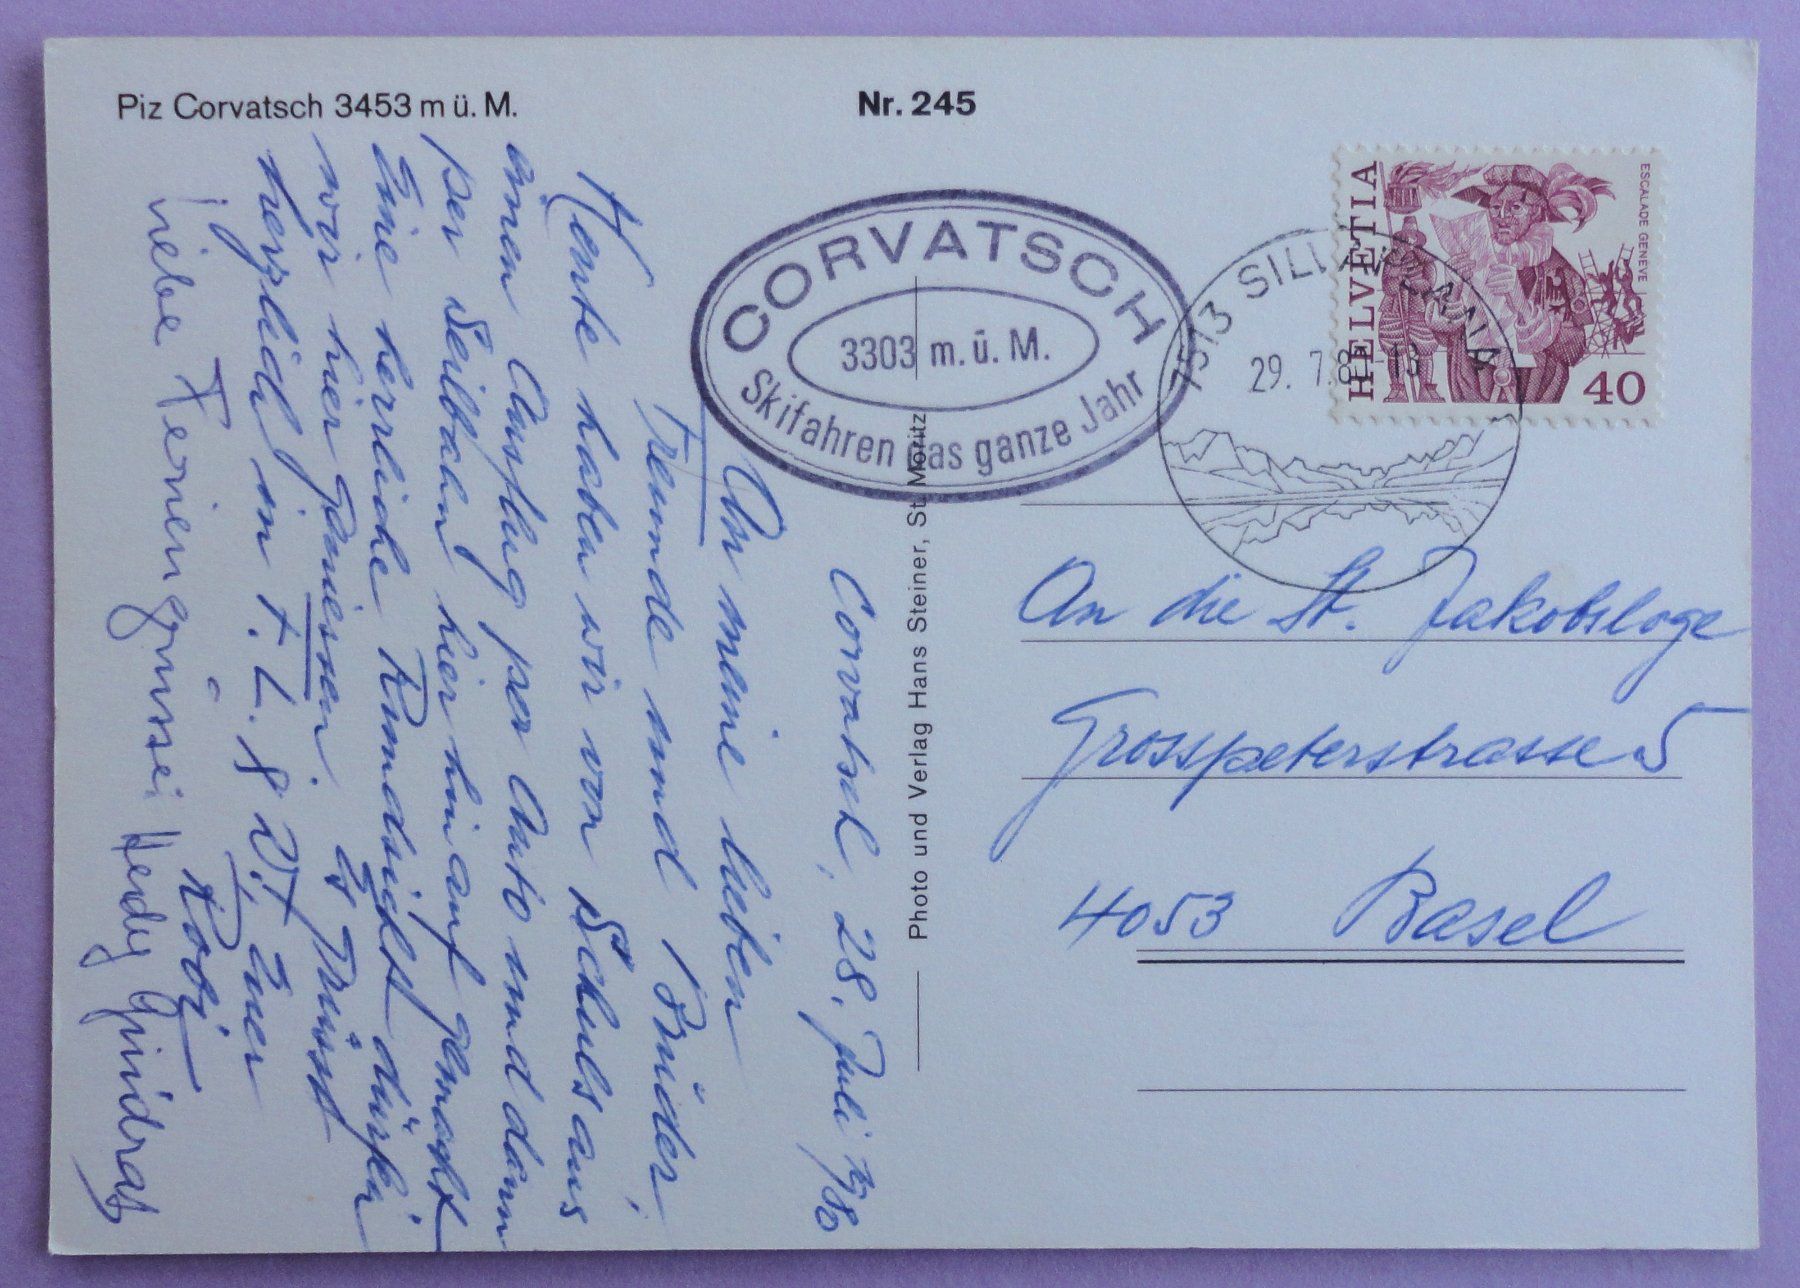 Piz Corvatsch 3453 m ü. M.
Nr. 245
CORVATSCH
3303 m. ü. M.
Skifahren das ganze Jahr
7513 SILVAPLANA
29. 7.8 -13
HELVETIA
ESCALADE GENEVE
40
Photo und Verlag Hans Steiner, St. Moritz
Corvatsch, 28. Juli 1980
An meine lieben
Freunde und Brüder!
Heute haben wir von Schuls aus
einen Ausflug per Auto und dann
per Seilbahn hier hinauf gemacht
Eine herrliche Rundsicht dürfen
wir hier geniessen. Es grüsst
herzlich in F. L. & W., Euer
Roby
liebe Feriengrüsse Hedy Gindrat
An die St. Jakobsloge
Grosspeterstrasse 5
4053 Basel